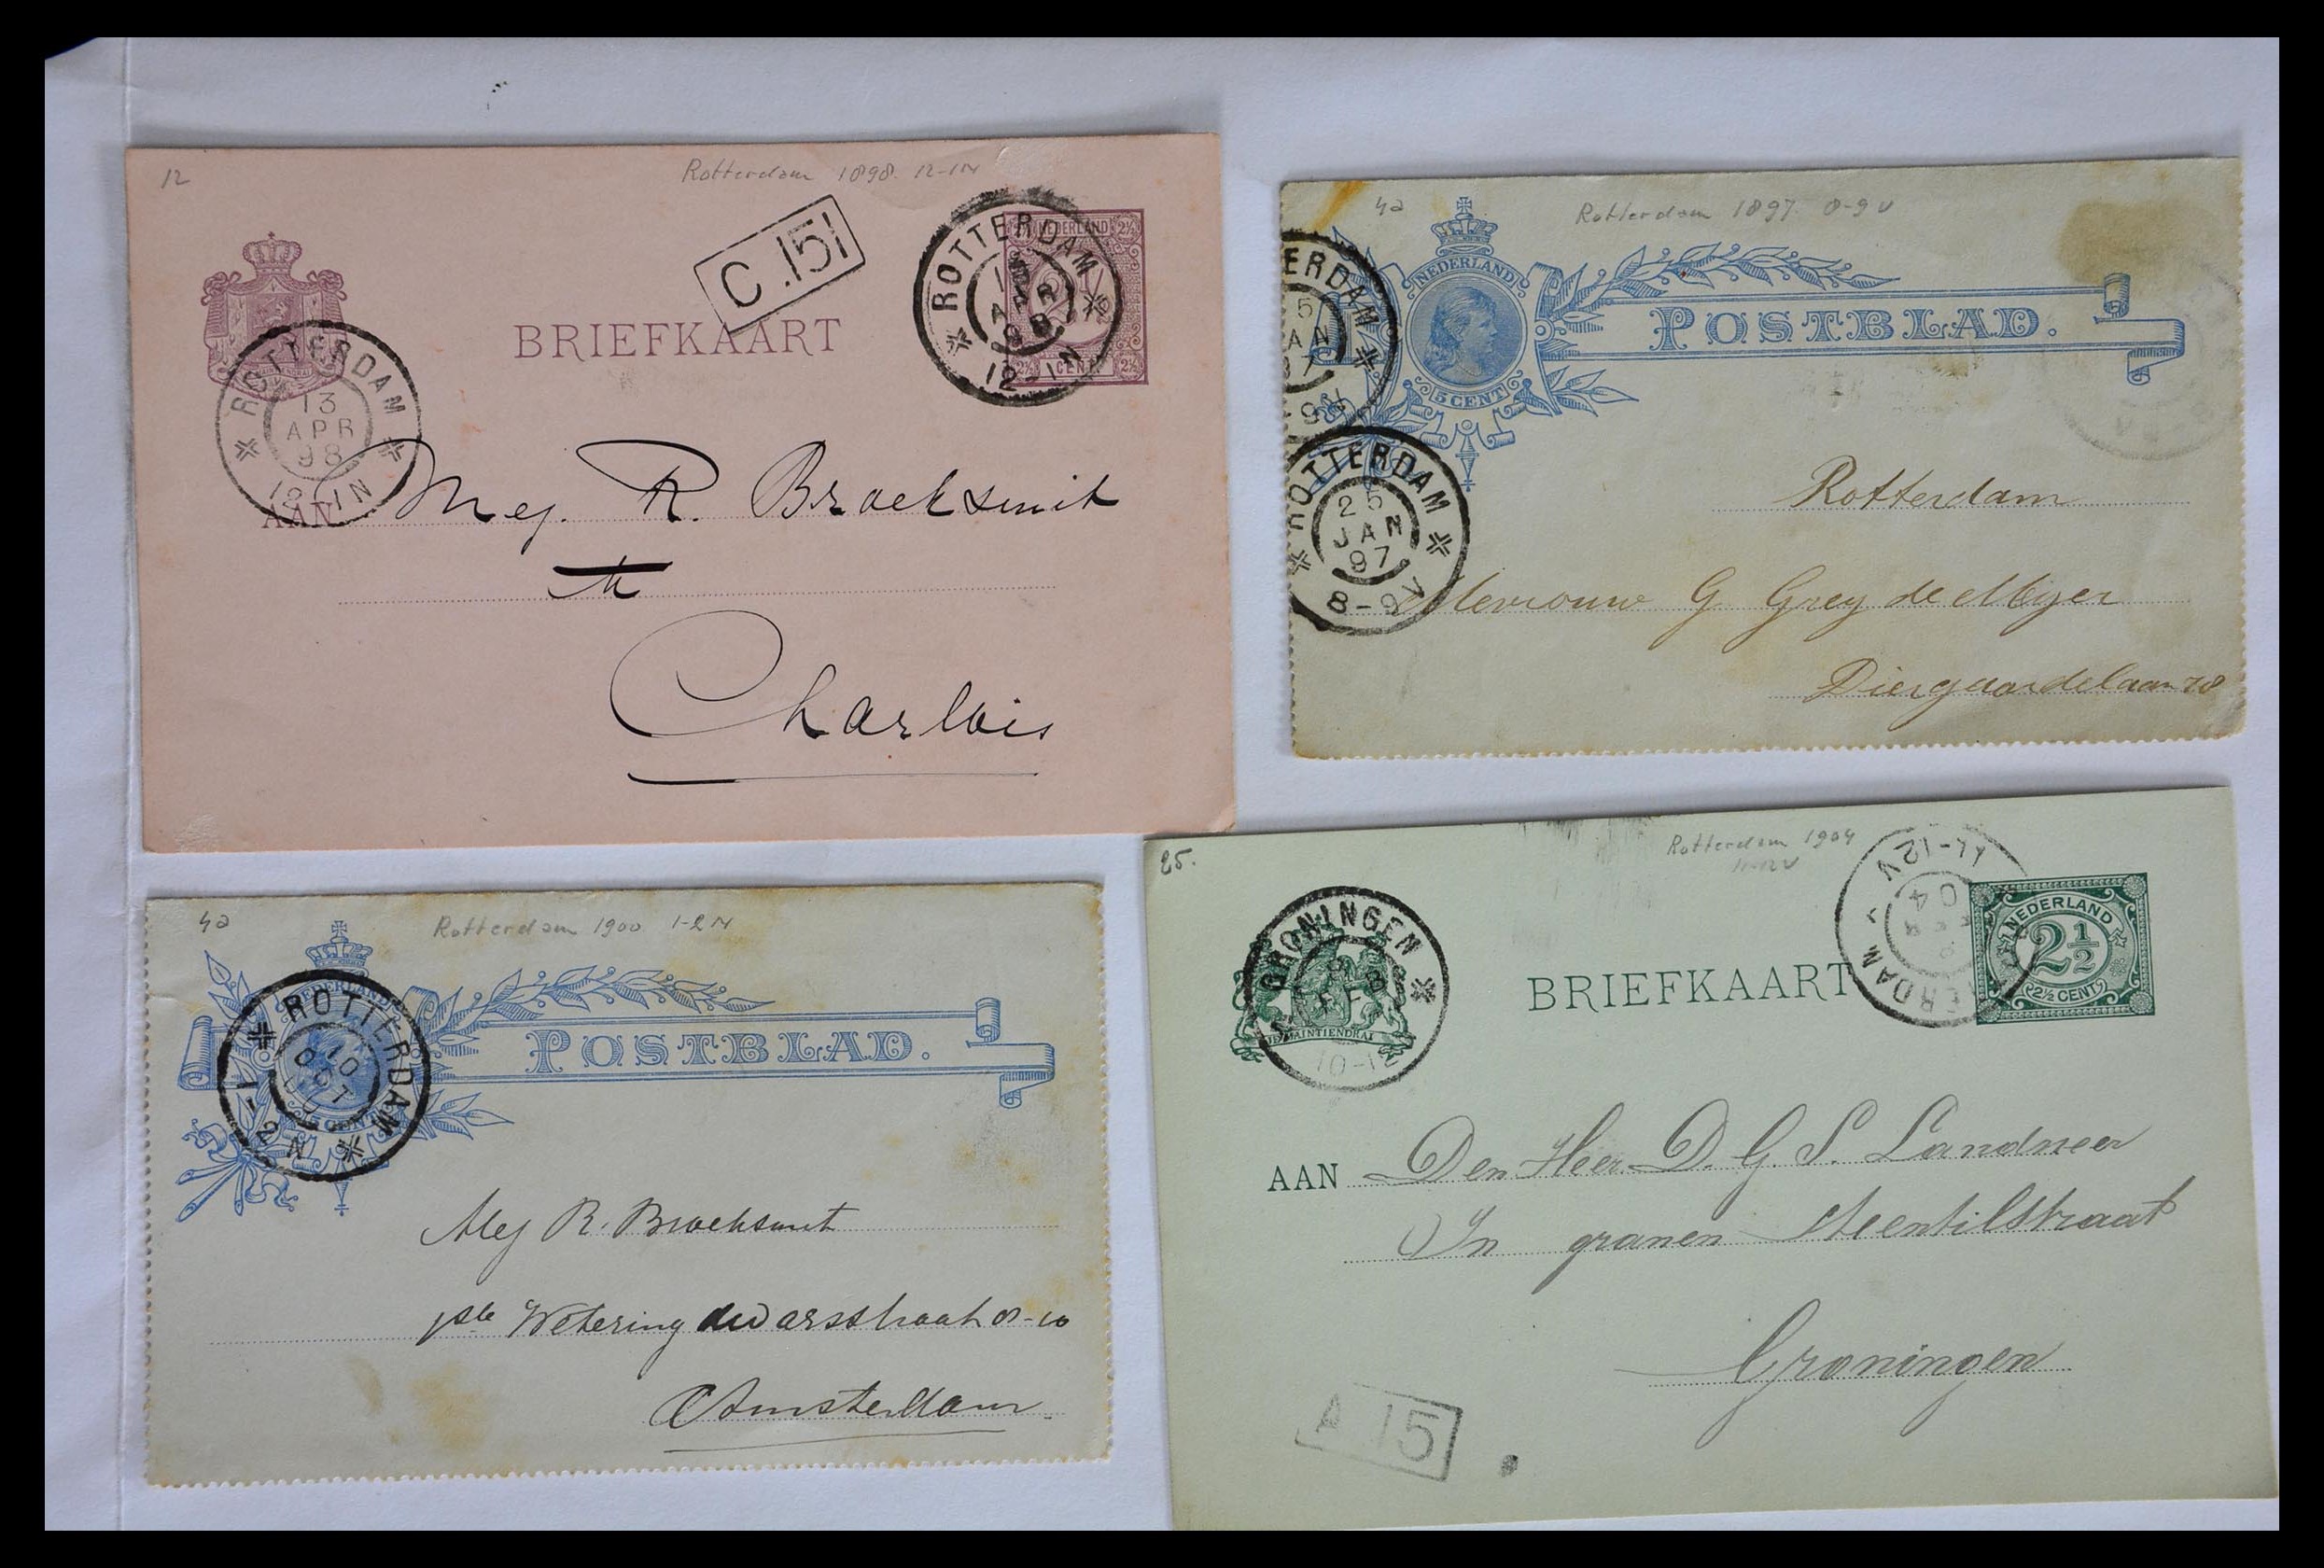 12
Rotterdam 1898 12-1N
C.151
NEDERLAND
2½
CENT
ROTTERDAM
13
APR
98
12-1N
BRIEFKAART
ROTTERDAM
13
APR
98
12-1N
AAN Mej. R. Broeksmit
te
Charlois
4a
Rotterdam 1897 8-9V
NEDERLAND
5 CENT
POSTBLAD.
ERDAM
5
AN
97
-9V
ROTTERDAM
25
JAN
97
8-9V
Rotterdam
Mevrouw G Grey de Meijer
Diergaardelaan 78
4a
Rotterdam 1900 1-2N
NEDERLAND
5 CENT
POSTBLAD.
ROTTERDAM
10
OCT
00
1-2N
Mej R. Broeksmit
1ste Wetering dwarsstraat 8-10
Amsterdam
25.
Rotterdam 1904
11-12V
GRONINGEN
FEB
10-12
JE MAINTIENDRAI
BRIEFKAART
11-12V
04
FEB
ERDAM
NEDERLAND
2½
2½ CENT
AAN Den Heer D. G. S. Landmeer
In granen Steentilstraat
Groningen
A 15